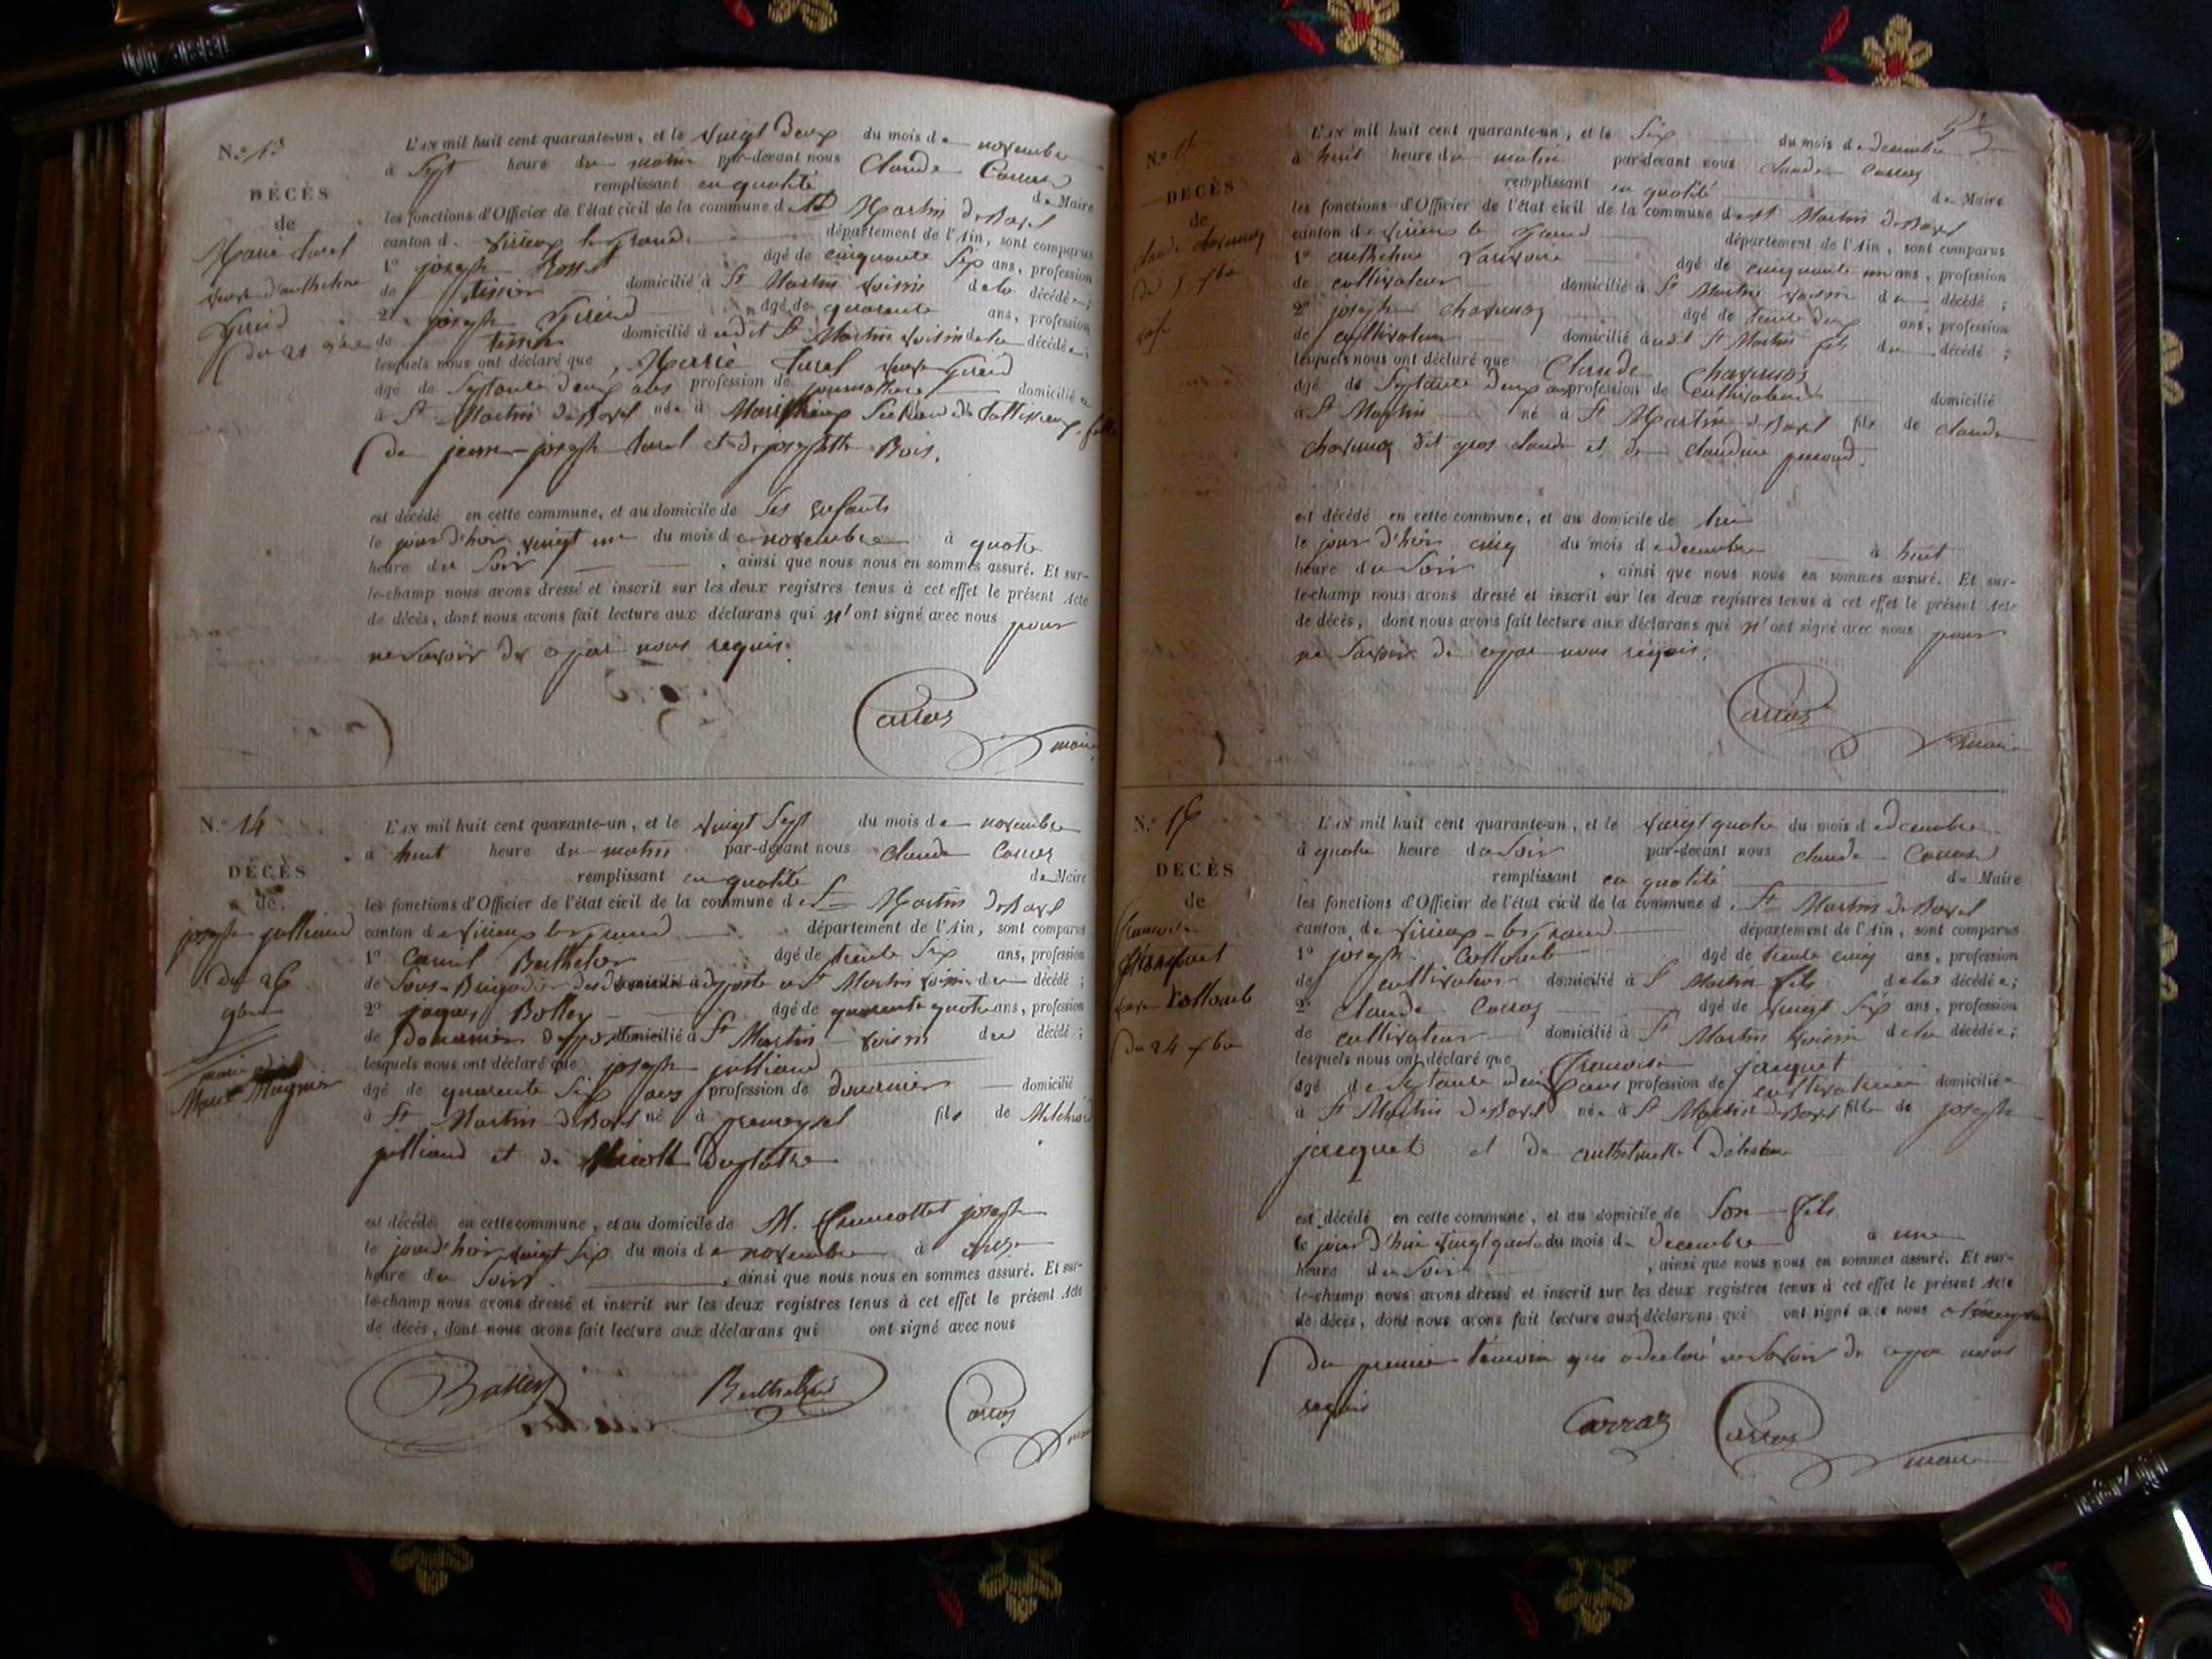 N.o 13
DÉCÈS
de
Marie turel
veuve d'anthelme
Guid
du 21 9bre
L'AN mil huit cent quarante-un, et le vingt deux du mois de novembre
à Sept heure du matin par-devant nous Claude Carraz
remplissant en qualité de Maire
les fonctions d'Officier de l'état civil de la commune de St Martin de Bavel
canton de virieux le Grand département de l'Ain, sont comparus
1o joseph Rosset âgé de cinquante Six ans, profession
de tissier domicilié à St Martin voisin de la décédée;
2o joseph âgé de quarante ans, profession
de tissier domicilié audit St Martin voisin de la décédée;
lesquels nous ont déclaré que Marie turel veuve
âgé de Septante deux ans profession de journalière domiciliée
à St Martin de Bavel née à fille
de jean-joseph turel et de josephte Bois,
est décédé en cette commune, et au domicile de Ses enfants
le jour d'hier vingt un du mois de novembre à quatre
heure du Soir, ainsi que nous nous en sommes assuré. Et sur-
le-champ nous avons dressé et inscrit sur les deux registres tenus à cet effet le présent Acte
de décès, dont nous avons fait lecture aux déclarans qui n'ont signé avec nous pour
ne Savoir de ce par nous requis.
Carraz
maire
N.o 14
DÉCÈS
de
joseph julliand
du 26
9bre
L'AN mil huit cent quarante-un, et le vingt Sept du mois de novembre
à huit heure du matin par-devant nous Claude Carraz
remplissant en qualité de Maire
les fonctions d'Officier de l'état civil de la commune de St Martin de Bavel
canton de virieux le grand département de l'Ain, sont comparus
1o Camil Berthelier âgé de trente Six ans, profession
de Sous-Brigadier des domicilié à St Martin voisin du décédé;
2o jaques Bolley âgé de quarente quatre ans, profession
de Douanier domicilié à St Martin voisin du décédé;
lesquels nous ont déclaré que joseph julliand
âgé de quarente Six ans profession de douanier domicilié
à St Martin de Bavel né à fils de Melchior
julliand et de Nicole
est décédé en cette commune, et au domicile de M. joseph
le jour d'hier vingt Six du mois de novembre à onze
heure du Soir, ainsi que nous nous en sommes assuré. Et sur-
le-champ nous avons dressé et inscrit sur les deux registres tenus à cet effet le présent Acte
de décès, dont nous avons fait lecture aux déclarans qui ont signé avec nous
Bolley Berthelier Carraz
N.o 15
DÉCÈS
de
claude
du 5 xbre
L'AN mil huit cent quarante-un, et le Six du mois de decembre
à huit heure du matin par-devant nous Claude Carraz
remplissant en qualité de Maire
les fonctions d'Officier de l'état civil de la commune de St Martin de Bavel
canton de virieux le Grand département de l'Ain, sont comparus
1o anthelme âgé de cinquante un ans, profession
de cultivateur domicilié à St Martin voisin du décédé;
2o joseph âgé de trente deux ans, profession
de cultivateur domicilié audit St Martin fils du décédé;
lesquels nous ont déclaré que Claude
âgé de Septante deux ans profession de Cultivateur domicilié
à St Martin né à St Martin de Bavel fils de claude
dit gros claude et de claudine
est décédé en cette commune, et au domicile de lui
le jour d'hier cinq du mois de decembre à huit
heure du Soir, ainsi que nous nous en sommes assuré. Et sur-
le-champ nous avons dressé et inscrit sur les deux registres tenus à cet effet le présent Acte
de décès, dont nous avons fait lecture aux déclarans qui n'ont signé avec nous pour
ne Savoir de ce par nous requis.
Carraz
maire
N.o 16
DECÈS
de
francoise
jacquet
veuve Collomb
du 24 xbre
L'AN mil huit cent quarante-un, et le vingt quatre du mois de decembre
à quatre heure du Soir par-devant nous Claude Carraz
remplissant en qualité de Maire
les fonctions d'Officier de l'état civil de la commune de St Martin de Bavel
canton de virieux-le grand département de l'Ain, sont comparus
1o joseph Collomb âgé de trente cinq ans, profession
de cultivateur domicilié à St Martin fils de la décédée;
2o Claude Carraz âgé de vingt Six ans, profession
de cultivateur domicilié à St Martin voisin de la décédée;
lesquels nous ont déclaré que francoise jacquet
âgé de Septante deux ans profession de cultivatrice domiciliée
à St Martin de Bavel née à St Martin de Bavel fille de joseph
jacquet et de anthelmette
est décédé en cette commune, et au domicile de Son fils
le jour d'hui vingt quatre du mois de decembre à une
heure du Soir, ainsi que nous nous en sommes assuré. Et sur-
le-champ nous avons dressé et inscrit sur les deux registres tenus à cet effet le présent Acte
de décès, dont nous avons fait lecture aux déclarans qui ont signé avec nous
du premier témoin qui a déclaré ne Savoir de ce par nous
requis
Carraz Carraz
maire